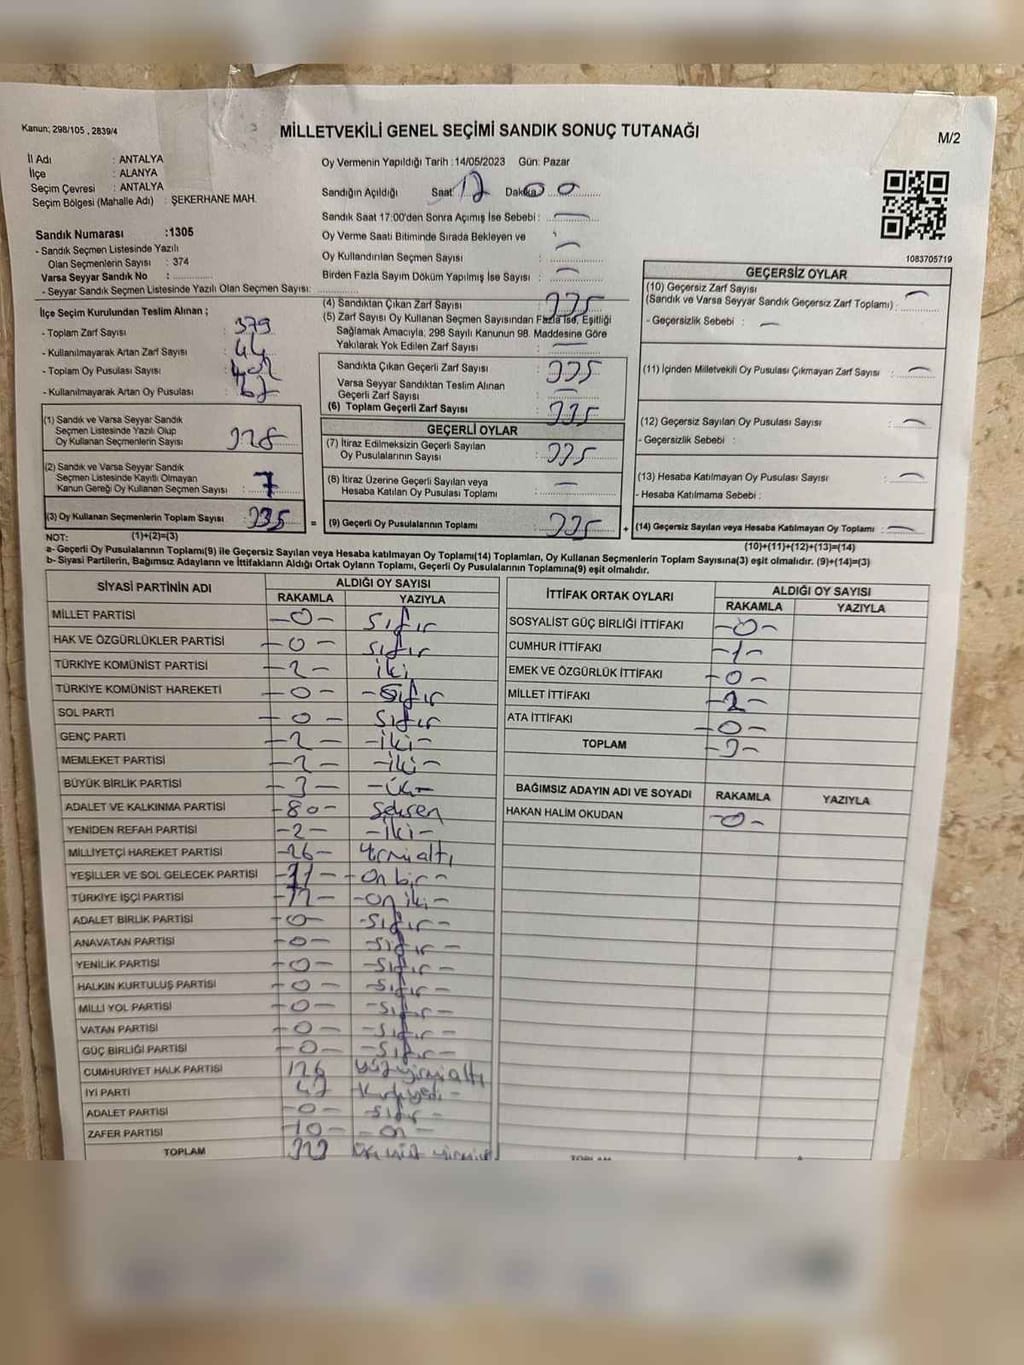 Kanun: 298/105 , 2839/4
MİLLETVEKİLİ GENEL SEÇİMİ SANDIK SONUÇ TUTANAĞI
M/2
İl Adı : ANTALYA
İlçe : ALANYA
Seçim Çevresi : ANTALYA
Seçim Bölgesi (Mahalle Adı) : ŞEKERHANE MAH.
Sandık Numarası :1305
- Sandık Seçmen Listesinde Yazılı
Olan Seçmenlerin Sayısı : 374
Varsa Seyyar Sandık No :
- Seyyar Sandık Seçmen Listesinde Yazılı Olan Seçmen Sayısı:
Oy Vermenin Yapıldığı Tarih :14/05/2023 Gün: Pazar
Sandığın Açıldığı Saat 17 Dakika 00
Sandık Saat 17:00'den Sonra Açımış İse Sebebi : —
Oy Verme Saati Bitiminde Sırada Bekleyen ve
Oy Kullandırılan Seçmen Sayısı : —
Birden Fazla Sayım Döküm Yapılmış İse Sayısı : —
1083705719
İlçe Seçim Kurulundan Teslim Alınan ;
- Toplam Zarf Sayısı : 379
- Kullanılmayarak Artan Zarf Sayısı : 44
- Toplam Oy Pusulası Sayısı : 402
- Kullanılmayarak Artan Oy Pusulası : 67
(1) Sandık ve Varsa Seyyar Sandık
Seçmen Listesinde Yazılı Olup
Oy Kullanan Seçmenlerin Sayısı : 328
(2) Sandık ve Varsa Seyyar Sandık
Seçmen Listesinde Kayıtlı Olmayan
Kanun Gereği Oy Kullanan Seçmen Sayısı : 7
(3) Oy Kullanan Seçmenlerin Toplam Sayısı : 335
(4) Sandıktan Çıkan Zarf Sayısı : 335
(5) Zarf Sayısı Oy Kullanan Seçmen Sayısından Fazla İse, Eşitliği
Sağlamak Amacıyla, 298 Sayılı Kanunun 98. Maddesine Göre
Yakılarak Yok Edilen Zarf Sayısı : —
Sandıkta Çıkan Geçerli Zarf Sayısı : 335
Varsa Seyyar Sandıktan Teslim Alınan
Geçerli Zarf Sayısı : —
(6) Toplam Geçerli Zarf Sayısı : 335
GEÇERLİ OYLAR
(7) İtiraz Edilmeksizin Geçerli Sayılan
Oy Pusulalarının Sayısı : 335
(8) İtiraz Üzerine Geçerli Sayılan veya
Hesaba Katılan Oy Pusulası Toplamı : —
= (9) Geçerli Oy Pusulalarının Toplamı : 335 +
GEÇERSİZ OYLAR
(10) Geçersiz Zarf Sayısı
(Sandık ve Varsa Seyyar Sandık Geçersiz Zarf Toplamı) : —
- Geçersizlik Sebebi : —
(11) İçinden Milletvekili Oy Pusulası Çıkmayan Zarf Sayısı : —
(12) Geçersiz Sayılan Oy Pusulası Sayısı : —
- Geçersizlik Sebebi :
(13) Hesaba Katılmayan Oy Pusulası Sayısı : —
- Hesaba Katılmama Sebebi :
(14) Geçersiz Sayılan veya Hesaba Katılmayan Oy Toplamı : —
NOT: (1)+(2)=(3)
(10)+(11)+(12)+(13)=(14)
a- Geçerli Oy Pusulalarının Toplamı(9) ile Geçersiz Sayılan veya Hesaba katılmayan Oy Toplamı(14) Toplamları, Oy Kullanan Seçmenlerin Toplam Sayısına(3) eşit olmalıdır. (9)+(14)=(3)
b- Siyasi Partilerin, Bağımsız Adayların ve İttifakların Aldığı Ortak Oyların Toplamı, Geçerli Oy Pusulalarının Toplamına(9) eşit olmalıdır.
SİYASİ PARTİNİN ADI
ALDIĞI OY SAYISI
RAKAMLA YAZIYLA
MİLLET PARTİSİ -0- sıfır
HAK VE ÖZGÜRLÜKLER PARTİSİ -0- sıfır
TÜRKİYE KOMÜNİST PARTİSİ -2- iki
TÜRKİYE KOMÜNİST HAREKETİ -0- -sıfır
SOL PARTİ -0- sıfır
GENÇ PARTİ -2- -iki-
MEMLEKET PARTİSİ -2- -iki-
BÜYÜK BİRLİK PARTİSİ -3- -üç-
ADALET VE KALKINMA PARTİSİ -80- seksen
YENİDEN REFAH PARTİSİ -2- -iki-
MİLLİYETÇİ HAREKET PARTİSİ -26- Yirmi altı
YEŞİLLER VE SOL GELECEK PARTİSİ -11- -on bir-
TÜRKİYE İŞÇİ PARTİSİ -12- -on iki-
ADALET BİRLİK PARTİSİ -0- -sıfır-
ANAVATAN PARTİSİ -0- -sıfır-
YENİLİK PARTİSİ -0- -sıfır-
HALKIN KURTULUŞ PARTİSİ -0- -sıfır-
MİLLİ YOL PARTİSİ -0- -sıfır-
VATAN PARTİSİ -0- -sıfır-
GÜÇ BİRLİĞİ PARTİSİ -0- -sıfır-
CUMHURİYET HALK PARTİSİ 126 yüz yirmi altı
İYİ PARTİ 47 Kırk yedi-
ADALET PARTİSİ -0- -sıfır-
ZAFER PARTİSİ -10- -on-
TOPLAM
İTTİFAK ORTAK OYLARI
ALDIĞI OY SAYISI
RAKAMLA YAZIYLA
SOSYALİST GÜÇ BİRLİĞİ İTTİFAKI -0-
CUMHUR İTTİFAKI -1-
EMEK VE ÖZGÜRLÜK İTTİFAKI -0-
MİLLET İTTİFAKI -2-
ATA İTTİFAKI -0-
TOPLAM -3-
BAĞIMSIZ ADAYIN ADI VE SOYADI RAKAMLA YAZIYLA
HAKAN HALİM OKUDAN -0-